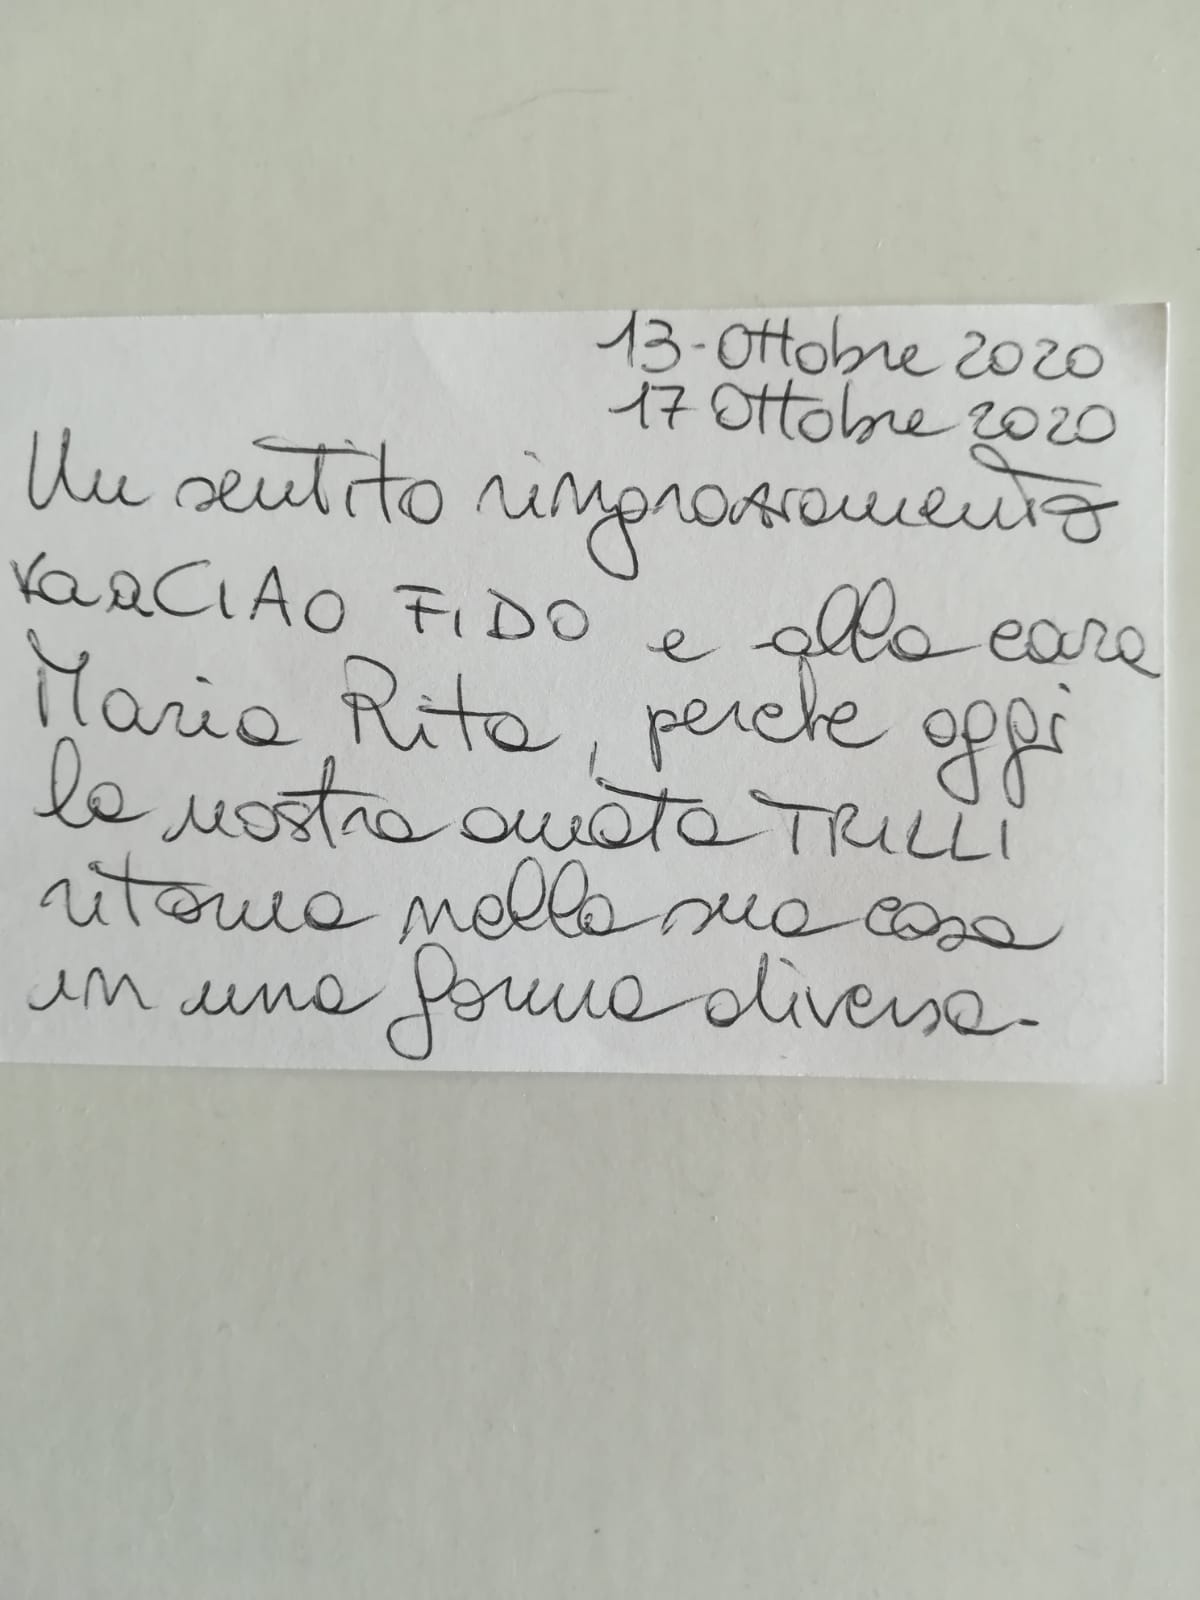 13-Ottobre 2020
17 Ottobre 2020
Un sentito ringraziamento
CIAO FIDO e alla cara
Maria Rita, perche oggi
la nostra amata TRILLI
ritorna nella sua casa
in una forma diversa-